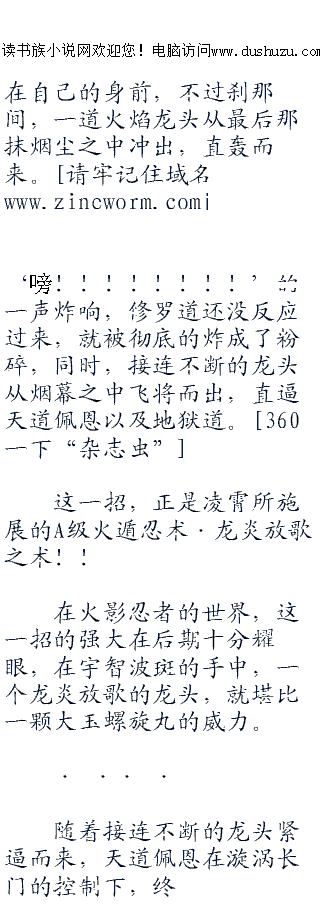 读书族小说网欢迎您！电脑访问www.dushuzu.com
在自己的身前，不过刹那
间，一道火焰龙头从最后那
抹烟尘之中冲出，直轰而
来。[请牢记住域名
www.zincworm.com|
‘嗙！！！！！！！！’的
一声炸响，修罗道还没反应
过来，就被彻底的炸成了粉
碎，同时，接连不断的龙头
从烟幕之中飞将而出，直逼
天道佩恩以及地狱道。[360
一下“杂志虫”]
这一招，正是凌霄所施
展的A级火遁忍术·龙炎放歌
之术！！
在火影忍者的世界，这
一招的强大在后期十分耀
眼，在宇智波斑的手中，一
个龙炎放歌的龙头，就堪比
一颗大玉螺旋丸的威力。
····
随着接连不断的龙头紧
逼而来，天道佩恩在漩涡长
门的控制下，终